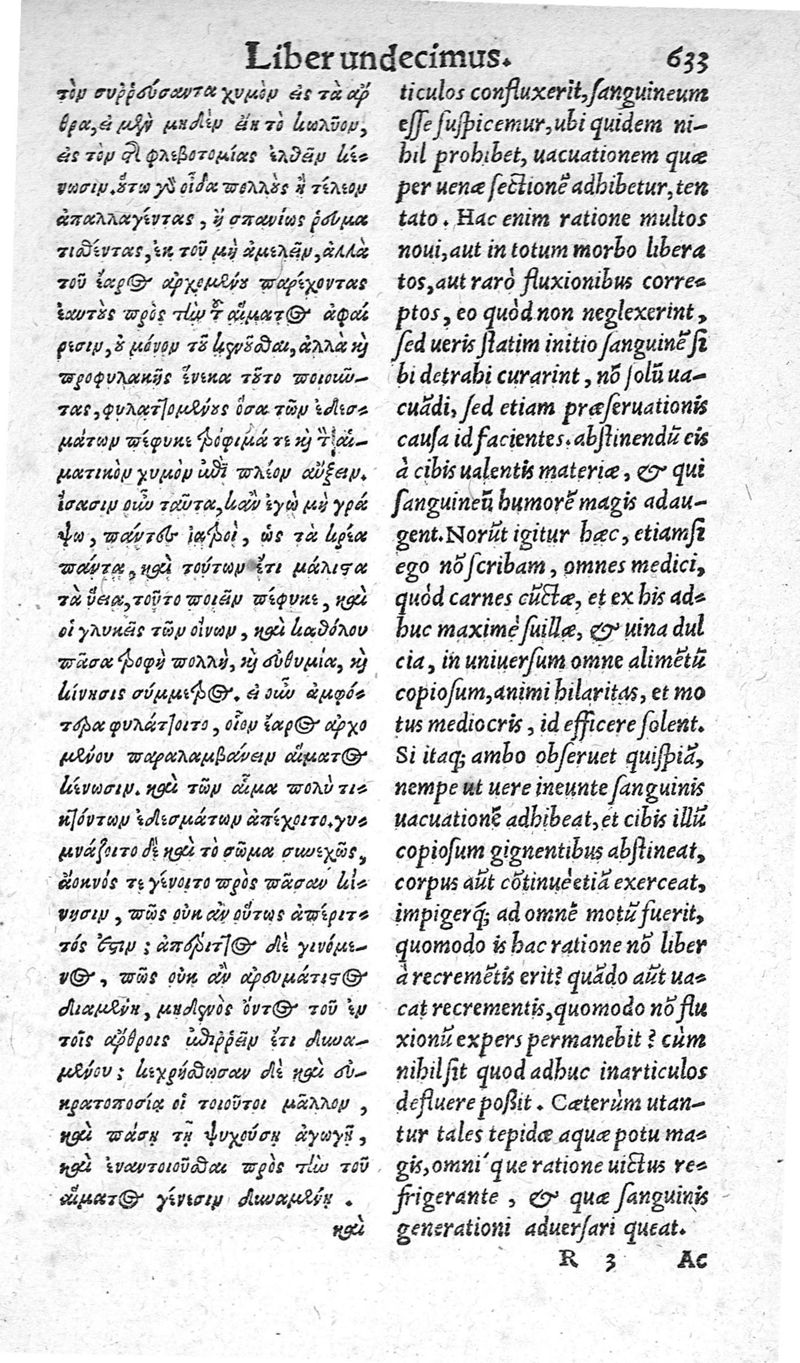 Liber undecimus. 633
τὸν συῤῥεύσαντα χυμὸν εἰς τὰ ἄρ
θρα, εἰ μὲν μηδὲν εἴη τὸ κωλῦον,
εἰς τὸν τῆς φλεβοτομίας ἐλθεῖν κέ-
νωσιν. οὕτω γὰρ οἶδα πολλοὺς ἢ τέλεον
ἀπαλλαγέντας, ἢ σπανίως ῥεῦμα
τιθέντας, ἐκ τοῦ μὴ ἀμελεῖν, ἀλλὰ
τοῦ ἔαρος ἀρχομένου παρέχοντας
ἑαυτοὺς πρὸς τὴν τοῦ αἵματος ἀφαί
ρεσιν, οὐ μόνον τοῦ κενοῦσθαι, ἀλλὰ καὶ
προφυλακῆς ἕνεκα τοῦτο ποιοῦν-
τας, φυλαττομένους ὅσα τῶν ἐδεσ-
μάτων πέφυκε τρόφιμά τε καὶ τὸν αἱ-
ματικὸν χυμὸν ἐπὶ πλέον αὔξειν.
ἴσασιν οὖν ταῦτα, κἂν ἐγὼ μὴ γρά
ψω, πάντες ἰατροὶ, ὡς τὰ κρέα
πάντα, καὶ τούτων ἔτι μάλιστα
τὰ ὕεια, τοῦτο ποιεῖν πέφυκε, καὶ
οἱ γλυκεῖς τῶν οἴνων, καὶ καθόλου
πᾶσα τροφὴ πολλὴ, καὶ εὐθυμία, καὶ
κίνησις σύμμετρος. εἰ οὖν ἀμφό-
τερα φυλάττοιτο, οἷον ἔαρος ἀρχο
μένου παραλαμβάνειν αἵματος
κένωσιν. καὶ τῶν αἷμα πολὺ τι-
κτόντων ἐδεσμάτων ἀπέχοιτο. γυ-
μνάζοιτο δὲ καὶ τὸ σῶμα συνεχῶς,
ἄοκνός τε γένοιτο πρὸς πᾶσαν κί-
νησιν, πῶς οὐκ ἂν οὕτως ἀπέριτ-
τός ἐστιν; ἀπέριττος δὲ γινόμε-
νος, πῶς οὐκ ἂν ἀρευμάτιστος
διαμένη, μηδενὸς ὄντος τοῦ ἐν
τοῖς ἄρθροις ἐπιῤῥεῖν ἔτι δυνα-
μένου; κεχρήσθωσαν δὲ καὶ εὐ-
κρατοποσίᾳ οἱ τοιοῦτοι μᾶλλον,
καὶ πάσῃ τῇ ψυχούσῃ ἀγωγῇ,
καὶ ἐναντιοῦσθαι πρὸς τὴν τοῦ
αἵματος γένεσιν δυναμένῃ.
καὶ
ticulos confluxerit, sanguineum
esse suspicemur, ubi quidem ni-
hil prohibet, uacuationem quæ
per uenæ sectionē adhibetur, ten
tato. Hac enim ratione multos
noui, aut in totum morbo libera
tos, aut rarò fluxionibus corre-
ptos, eo quòd non neglexerint,
sed ueris statim initio sanguinē si
bi detrahi curarint, nō solū ua-
cuādi, sed etiam præseruationis
causa id facientes. abstinendū eis
à cibis ualentis materiæ, & qui
sanguineū humorē magis adau-
gent. Norūt igitur hæc, etiamsi
ego nō scribam, omnes medici,
quòd carnes cūctæ, et ex his ad-
huc maximè suillæ, & uina dul
cia, in uniuersum omne alimētū
copiosum, animi hilaritas, et mo
tus mediocris, id efficere solent.
Si itaq; ambo obseruet quispiā,
nempe ut uere ineunte sanguinis
uacuationē adhibeat, et cibis illū
copiosum gignentibus abstineat,
corpus aūt cōtinuè etiā exerceat,
impigerq́; ad omnē motū fuerit,
quomodo is hac ratione nō liber
à recremētis erit? quādo aūt ua-
cat recrementis, quomodo nō flu
xionū expers permanebit? cùm
nihil sit quod adhuc in articulos
defluere possit. Cæterùm utan-
tur tales tepidæ aquæ potu ma-
gis, omni´que ratione uictus re-
frigerante, & quæ sanguinis
generationi aduersari queat.
R 3 Ac